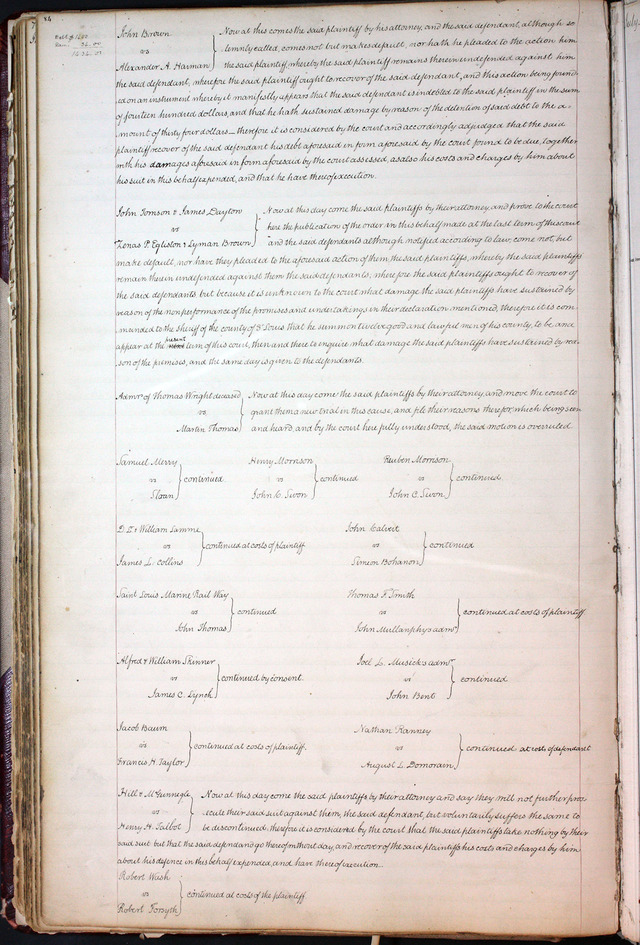 24
Debt $1400
Dam. 34.00
1434.00
John Brown
vs
Alexander A. Harman
Now at this comes the said plaintiff by his attorney, and the said defendant, although so
lemnly called, comes not but makes default, nor hath he pleaded to the action him
the said plaintiff, whereby the said plaintiff remains therein undefended against him
the said defendant, wherefore the said plaintiff ought to recover of the said defendant, and this action being found
ed on an instrument whereby it manifestly appears that the said defendant is indebted to the said plaintiff in the sum
of fourteen hundred dollars, and that he hath sustained damage by reason of the detention of said debt to the a
mount of thirty four dollars — therefore it is considered by the court and accordingly adjudged that the said
plaintiff recover of the said defendant his debt aforesaid in form aforesaid by the court found to be due, together
with his damages aforesaid in form aforesaid by the court assessed, as also his costs and charges by him about
his suit in this behalf expended, and that he have thereof execution.
John Tomson & James Dayton
vs
Zenas P. Egliston & Lyman Brown
Now at this day come the said plaintiffs by their attorney, and prove to the court
here the publication of the order in this behalf made at the last term of this court
and the said defendants although notified according to law, come not but
make default, nor have they pleaded to the aforesaid action of them the said plaintiffs, whereby the said plaintiffs
remain therein undefended against them the said defendants, wherefore the said plaintiffs ought to recover of
the said defendants but because it is unknown to the court what damage the said plaintiffs have sustained by
reason of the nonperformance of the promises and undertakings in their declaration mentioned, therefore it is com
manded to the sheriff of the county of St Louis that he summon twelve good and lawful men of his county, to be and
appear at the present term of this court, then and there to enquire what damage the said plaintiffs have sustained by rea
son of the premises, and the same day is given to the defendants.
Admr of Thomas Wright deceased
vs
Martin Thomas
Now at this day come the said plaintiffs by their attorney, and move the court to
grant them a new trial in this cause, and file their reasons therefor, which being seen
and heard, and by the court here fully understood, the said motion is overruled
Samuel Merry
vs
Sloan
continued
Henry Morrison
vs
John C. Swon
continued
Reuben Morrison
vs
John C. Swon
continued
D. I. & William Lamme
vs
James L. Collins
continued at costs of plaintiff
John Calvert
vs
Simeon Bohanon
continued
Saint Louis Marine Rail Way
vs
John Thomas
continued
Thomas F. Smith
vs
John Mullanphy's admr
continued at costs of plaintiff
Alfred & William Skinner
vs
James C. Lynch
continued by consent.
Joel L. Musick's admr
vs
John Bent
continued
Jacob Baum
vs
Francis H. Taylor
continued at costs of plaintiff.
Nathan Ranney
vs
August L. Domorain
continued at costs of defendant
Hill & McGunnegle
vs
Henry H. Talbot
Now at this day come the said plaintiffs by their attorney and say they will not further pros
ecute their said suit against them, the said defendant, but voluntarily suffers the same to
be discontinued, therefore it is considered by the court that the said plaintiffs take nothing by their
said suit but that the said defendant go thereof without day, and recover of the said plaintiffs his costs and charges by him
about his defence in this behalf expended, and have thereof execution.
Robert Wash
vs
Robert Forsyth
continued at costs of the plaintiff